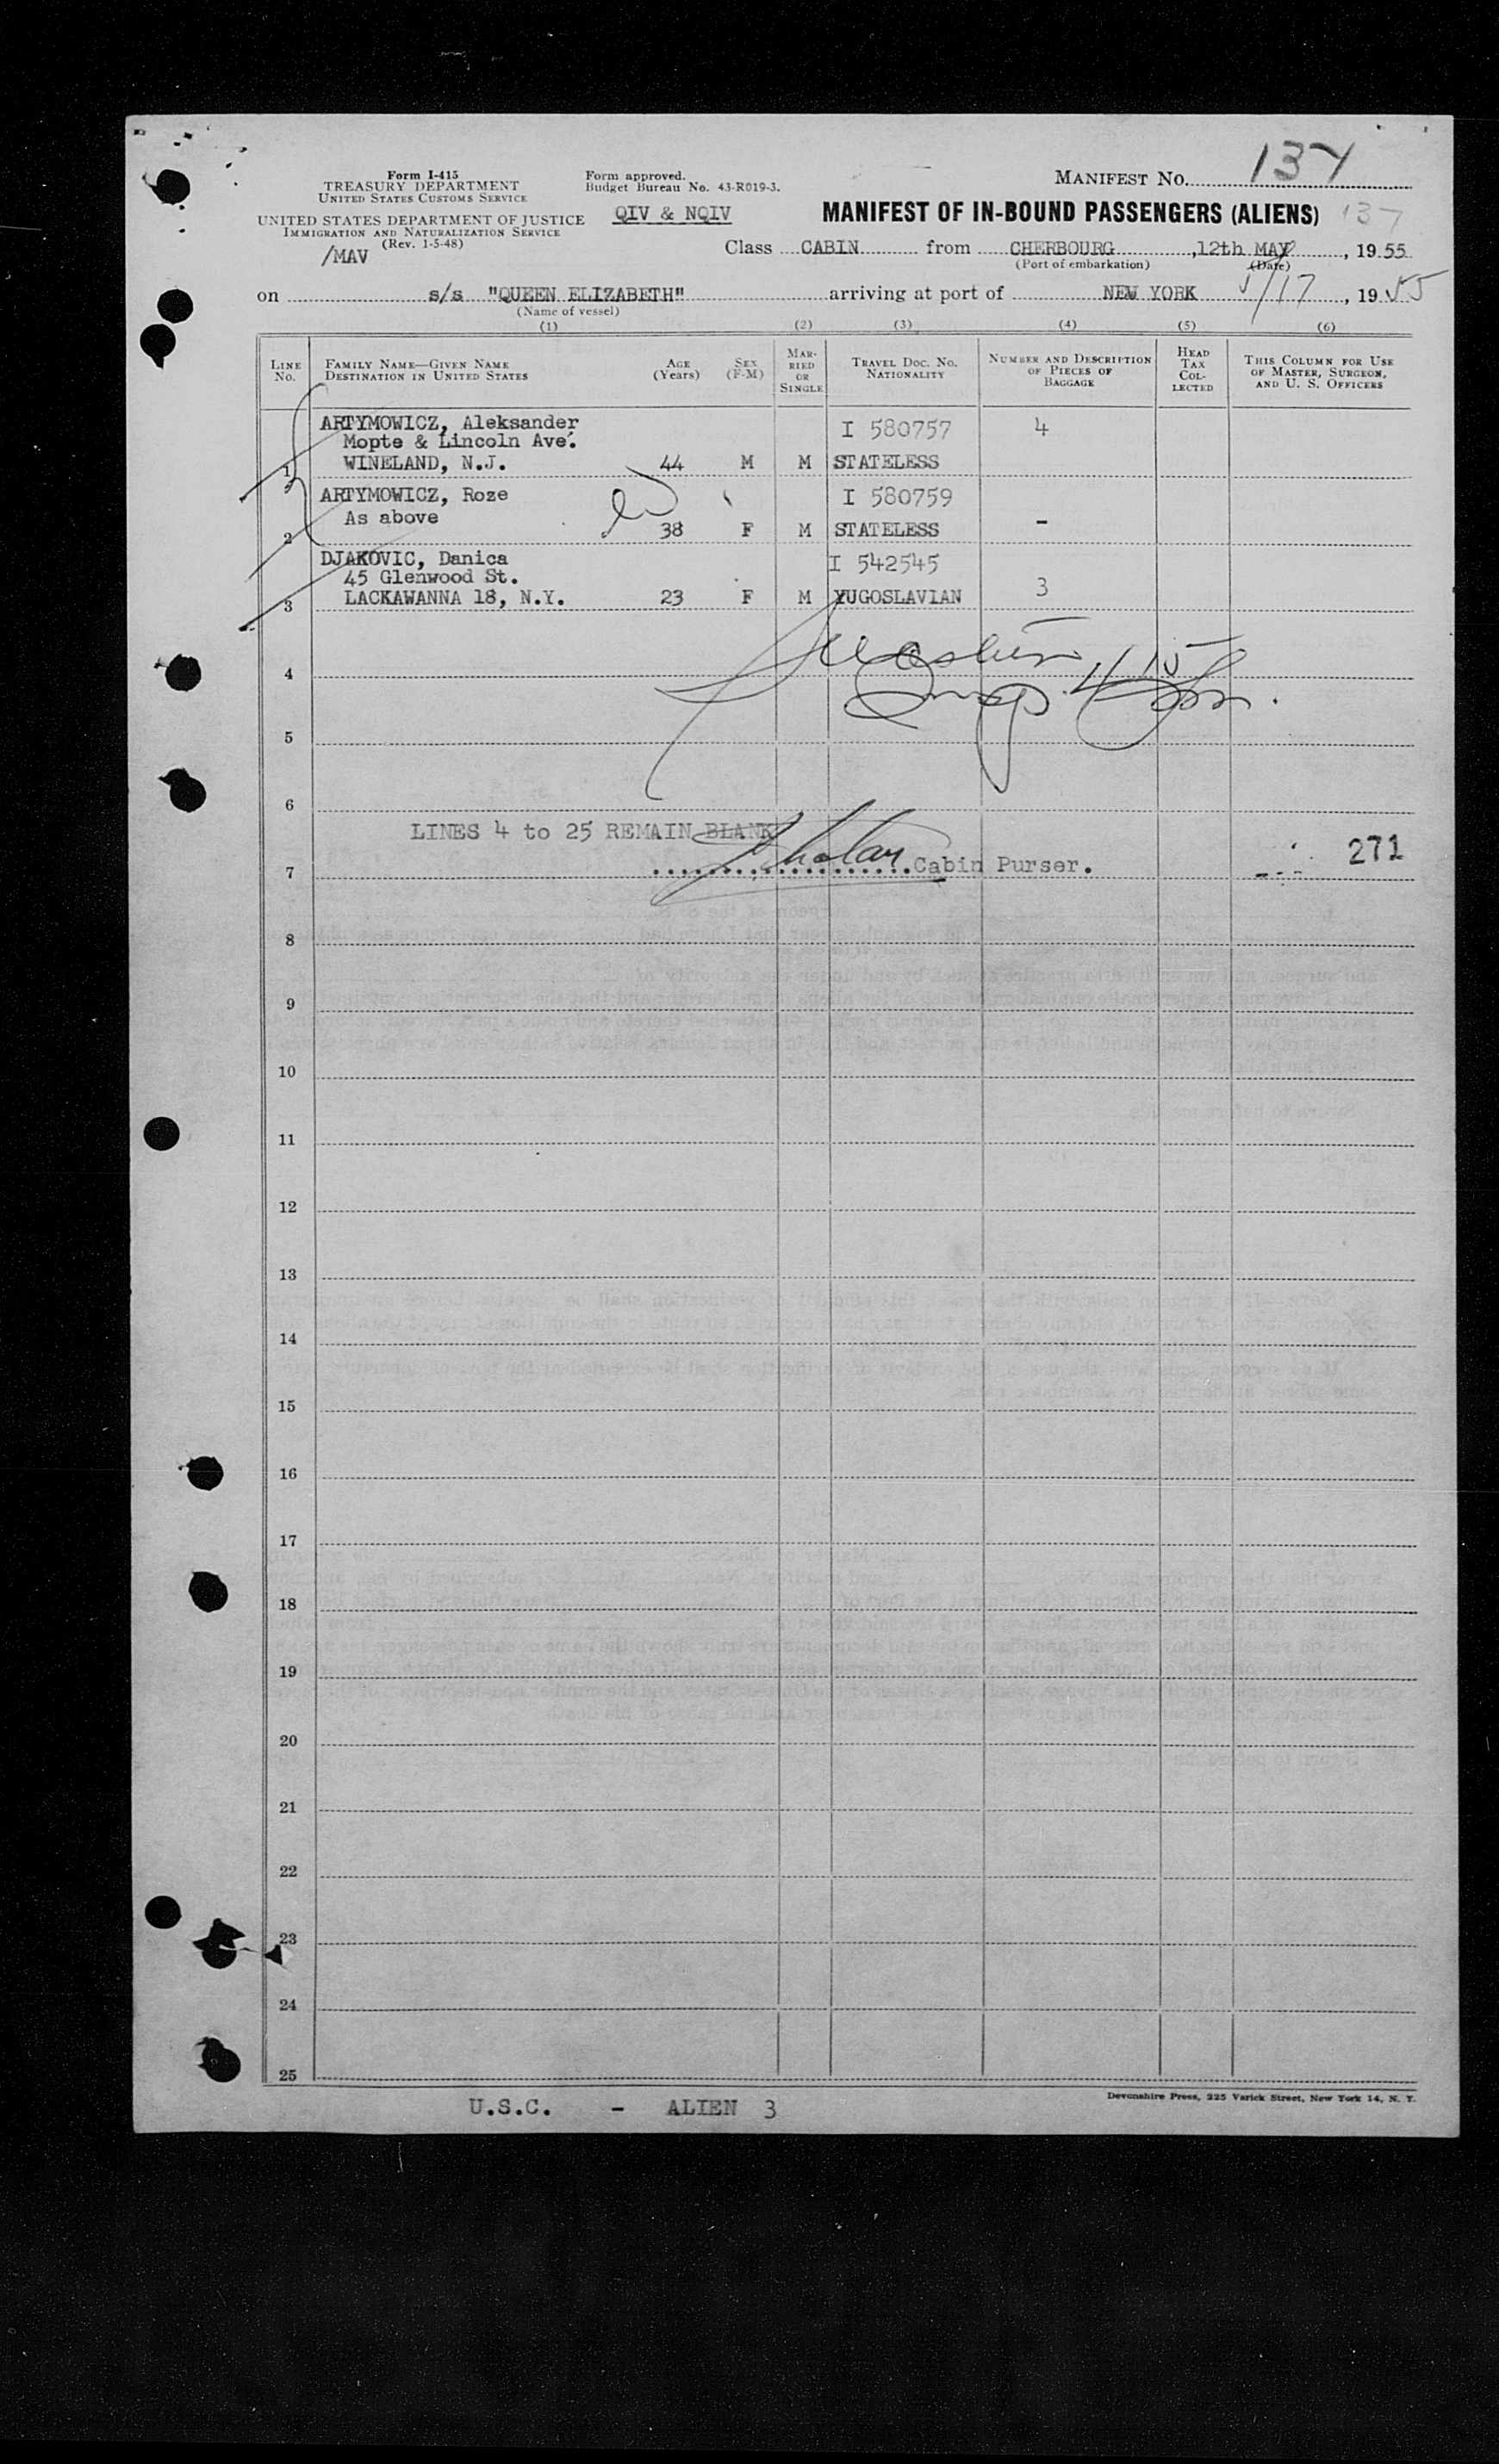 Form I-415
TREASURY DEPARTMENT
UNITED STATES CUSTOMS SERVICE
UNITED STATES DEPARTMENT OF JUSTICE
IMMIGRATION AND NATURALIZATION SERVICE
(Rev. 1-5-48)
/MAV
Form approved.
Budget Bureau No. 43-R019-3.
QIV & NQIV
MANIFEST NO. 137
MANIFEST OF IN-BOUND PASSENGERS (ALIENS) 137
Class CABIN from CHERBOURG, 12th MAY, 1955
(Port of embarkation) (Date)
on s/s "QUEEN ELIZABETH" arriving at port of NEW YORK 5/17, 1955
(Name of vessel)
(1) (2) (3) (4) (5) (6)
LINE NO. FAMILY NAME—GIVEN NAME DESTINATION IN UNITED STATES AGE (Years) SEX (F-M) MARRIED OR SINGLE TRAVEL DOC. NO. NATIONALITY NUMBER AND DESCRIPTION OF PIECES OF BAGGAGE HEAD TAX COLLECTED THIS COLUMN FOR USE OF MASTER, SURGEON, AND U. S. OFFICERS
ARTYMOWICZ, Aleksander I 580757 4
Mopte & Lincoln Ave.
1 WINELAND, N.J. 44 M M STATELESS
ARTYMOWICZ, Roze I 580759
As above
2 38 F M STATELESS -
DJAKOVIC, Danica I 542545
45 Glenwood St.
3 LACKAWANNA 18, N.Y. 23 F M YUGOSLAVIAN 3
4
5
6
LINES 4 to 25 REMAIN BLANK
7 Cabin Purser. 271
8
9
10
11
12
13
14
15
16
17
18
19
20
21
22
23
24
25
Devonshire Press, 225 Varick Street, New York 14, N. Y.
U.S.C. - ALIEN 3